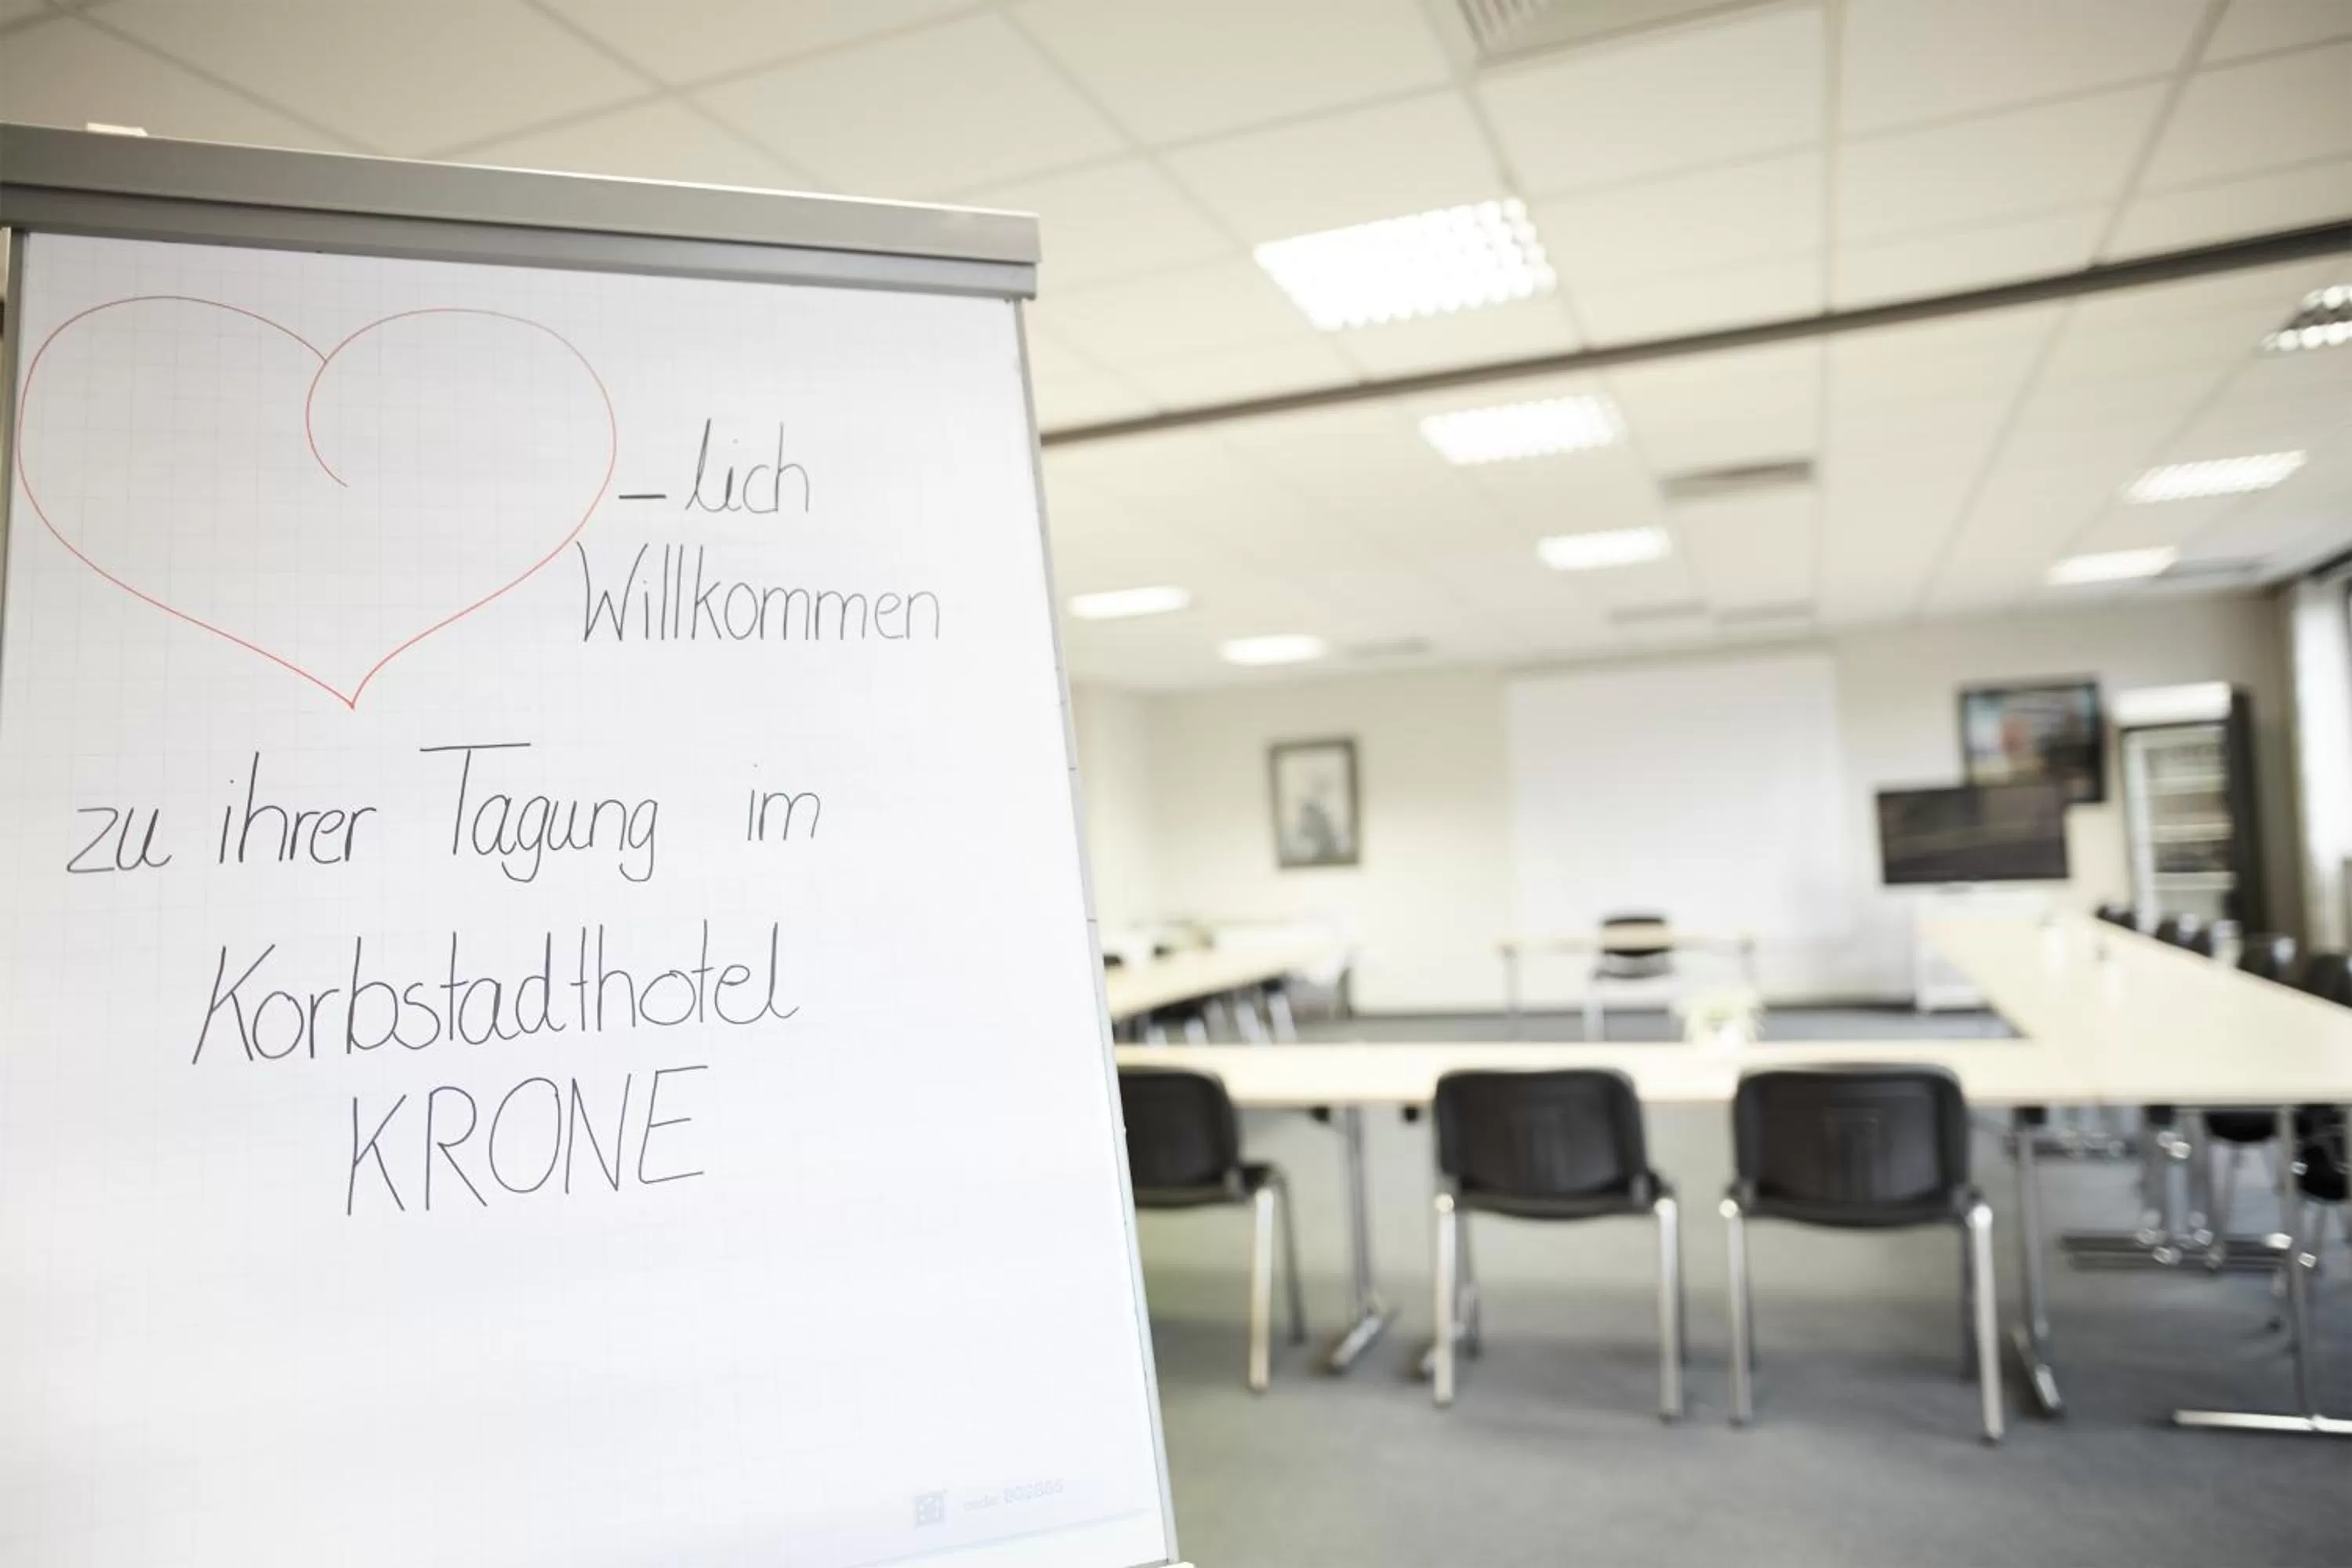 -lich
Willkommen
zu ihrer Tagung im
Korbstadthotel
KRONE